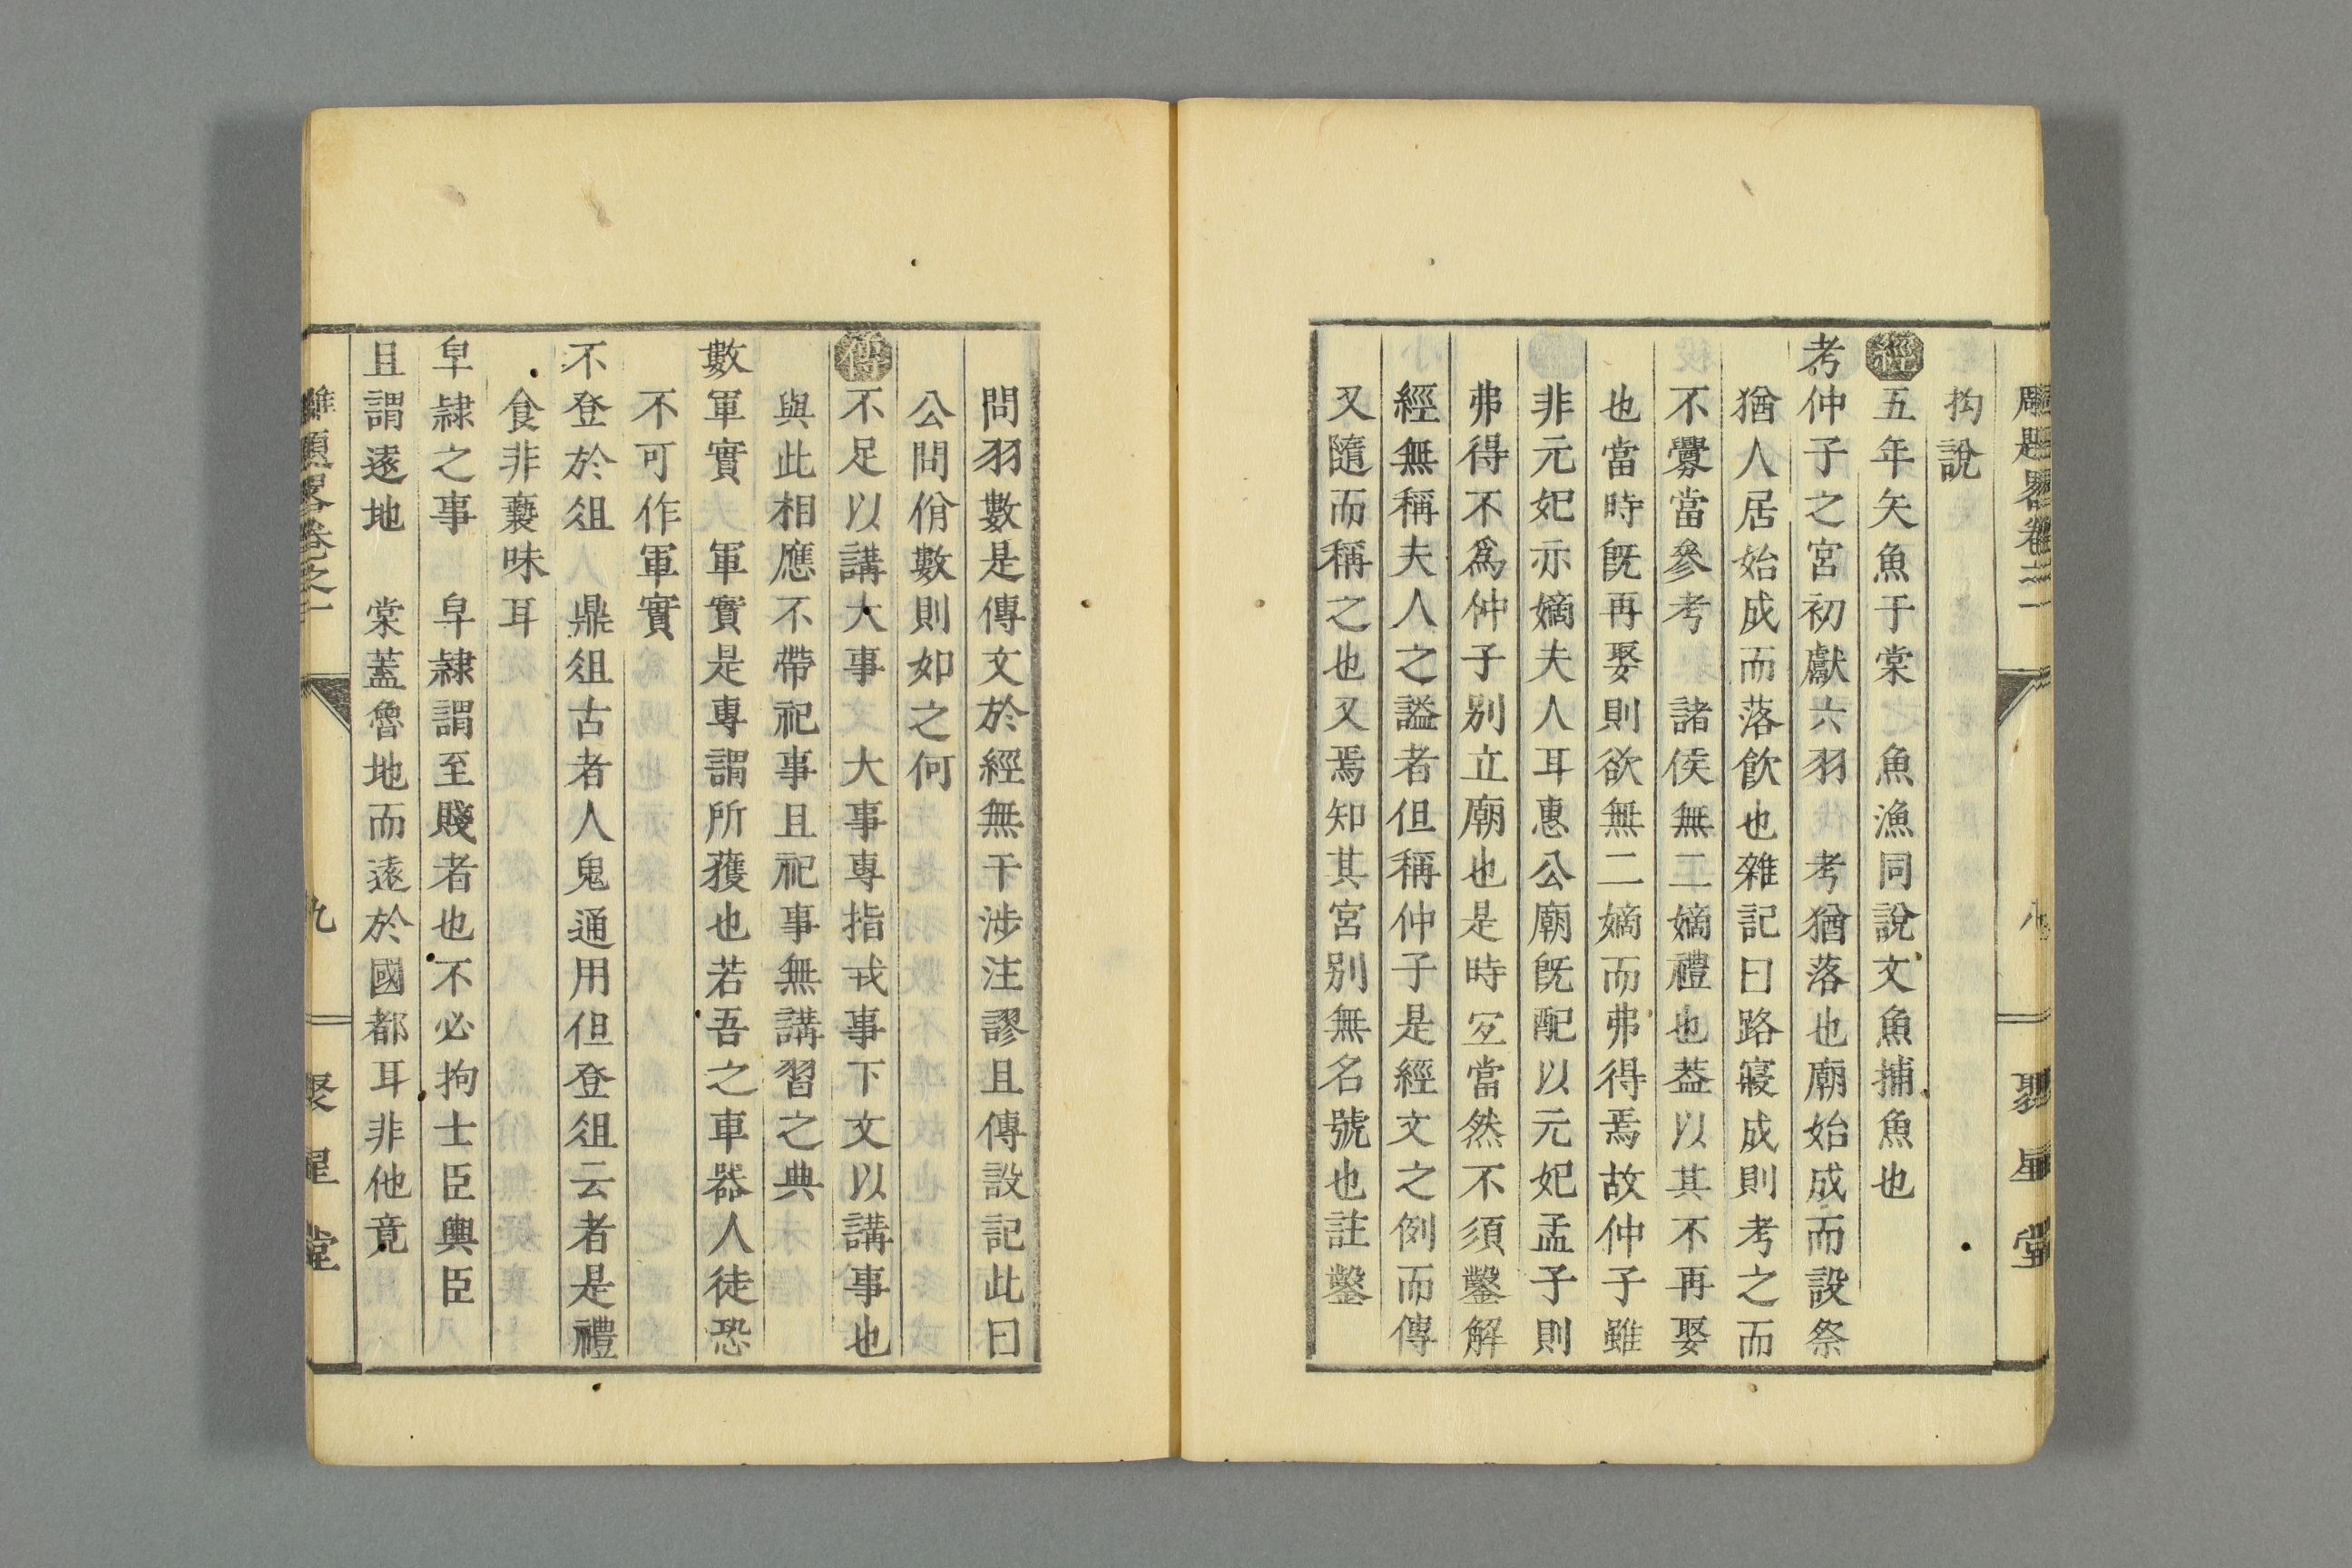 雕題畧卷之一
聚星堂
拘說
經五年矢魚于棠 魚漁同說文魚捕魚也
考仲子之宮初獻六羽 考猶落也廟始成而設祭
猶人居始成而落飲也雜記曰路寢成則考之而
不釁當參考 諸侯無二嫡禮也葢以其不再娶
也當時旣再娶則欲無二嫡而弗得焉故仲子雖
非元妃亦嫡夫人耳惠公廟旣配以元妃孟子則
弗得不爲仲子別立廟也是時冝當然不須鑿解
經無稱夫人之謚者但稱仲子是經文之例而傳
又隨而稱之也又焉知其宮別無名號也註鑿
問羽數是傳文於經無干涉注謬且傳設記此曰
公問佾數則如之何
傳不足以講大事 大事專指戎事下文以講事也
與此相應不帶祀事且祀事無講習之典
數軍實 軍實是專謂所獲也若吾之車器人徒恐
不可作軍實
不登於俎 鼎俎古者人鬼通用但登俎云者是禮
食非褻味耳
皁隷之事 皁隷謂至賤者也不必拘士臣輿臣
且謂遠地 棠蓋魯地而遠於國都耳非他竟
雕題畧卷之一
九
聚星堂